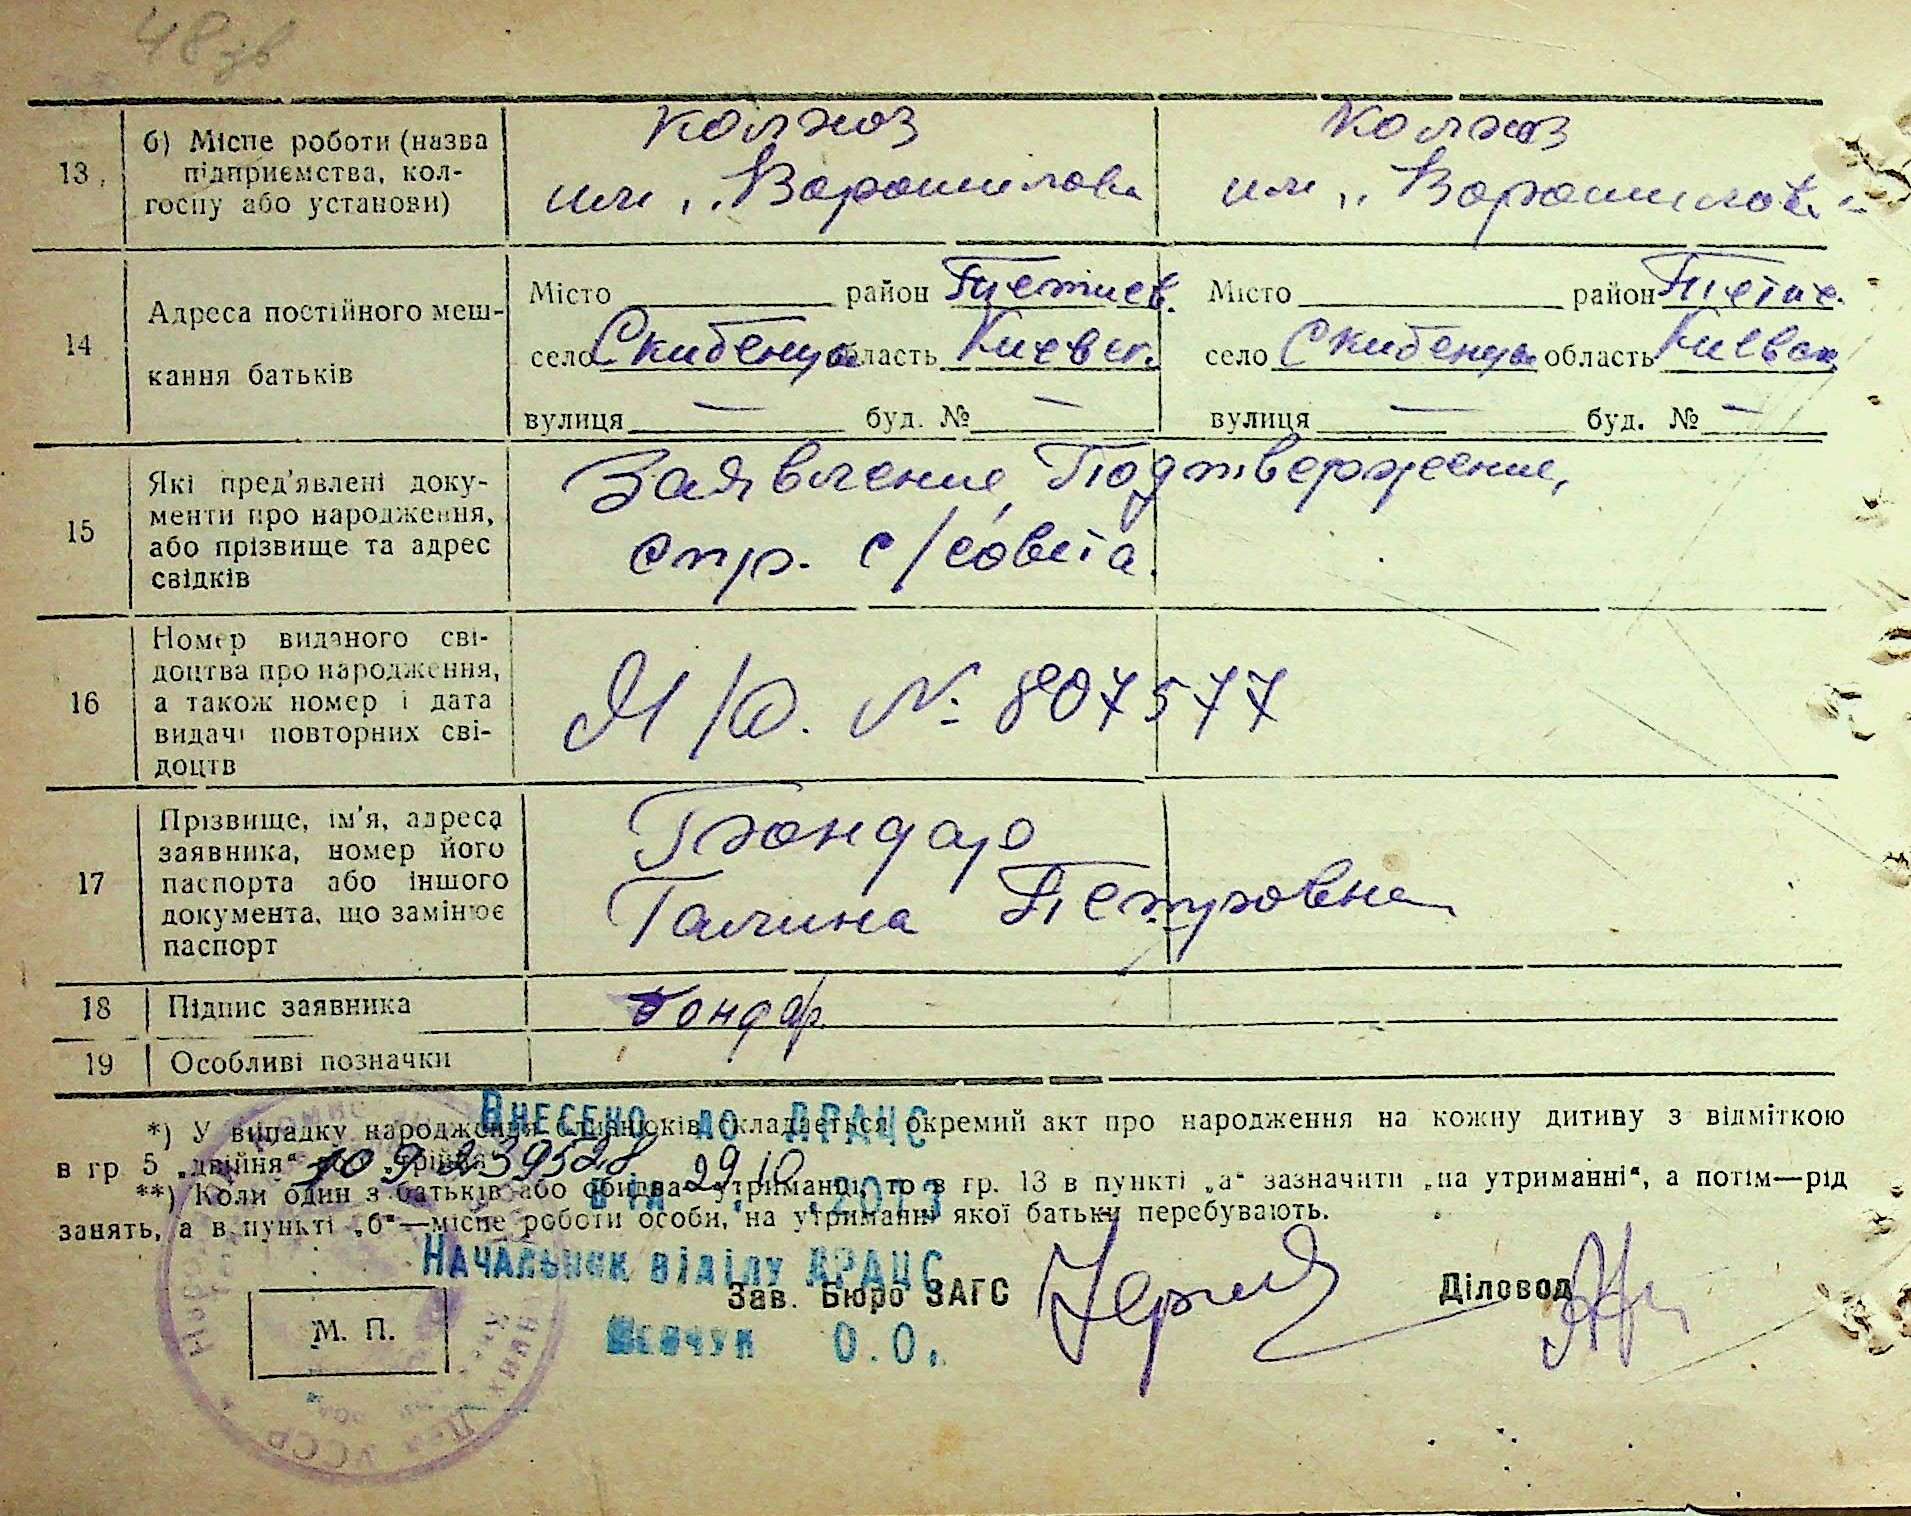 48 зв
13. б) Місце роботи (назва колхоз колхоз
підприємства, кол- им. „Ворошилова им. „Ворошилова“
госпу або установи)
Місто район Тетиев. Місто район Тетие.
14 Адреса постійного меш- село Скибенцы область Киевск. село Скибенцы область Киевск
кання батьків
вулиця — буд. № — вулиця — буд. № —
Які пред'явлені доку- Заявление, Подтверждение,
менти про народження,
15 або прізвище та адрес спр. с/совета.
свідків
Номер виданого сві-
доцтва про народження,
16 а також номер і дата № 807577
видачі повторних сві-
доцтв
Прізвище, ім'я, адреса Бондар
заявника, номер його
17 паспорта або іншого Галина Петровна
документа, що замінює
паспорт
18 Підпис заявника Бондар
19 Особливі позначки
Внесено до ДРАЦС
*) У випадку народження близнюків складається окремий акт про народження на кожну дитину з відміткою
в гр. 5 „двійня“ або „трійня“.
109239528 29 10
**) Коли один з батьків або обидва утриманці, то в гр. 13 в пункті „а“ зазначити „на утриманні“, а потім—рід
від . .2013
занять, а в пункті „б“—місце роботи особи, на утриманні якої батьки перебувають.
Начальник відділу ДРАЦС
Зав. Бюро ЗАГС Діловод
М. П.
Шевчук О.О.
УССР